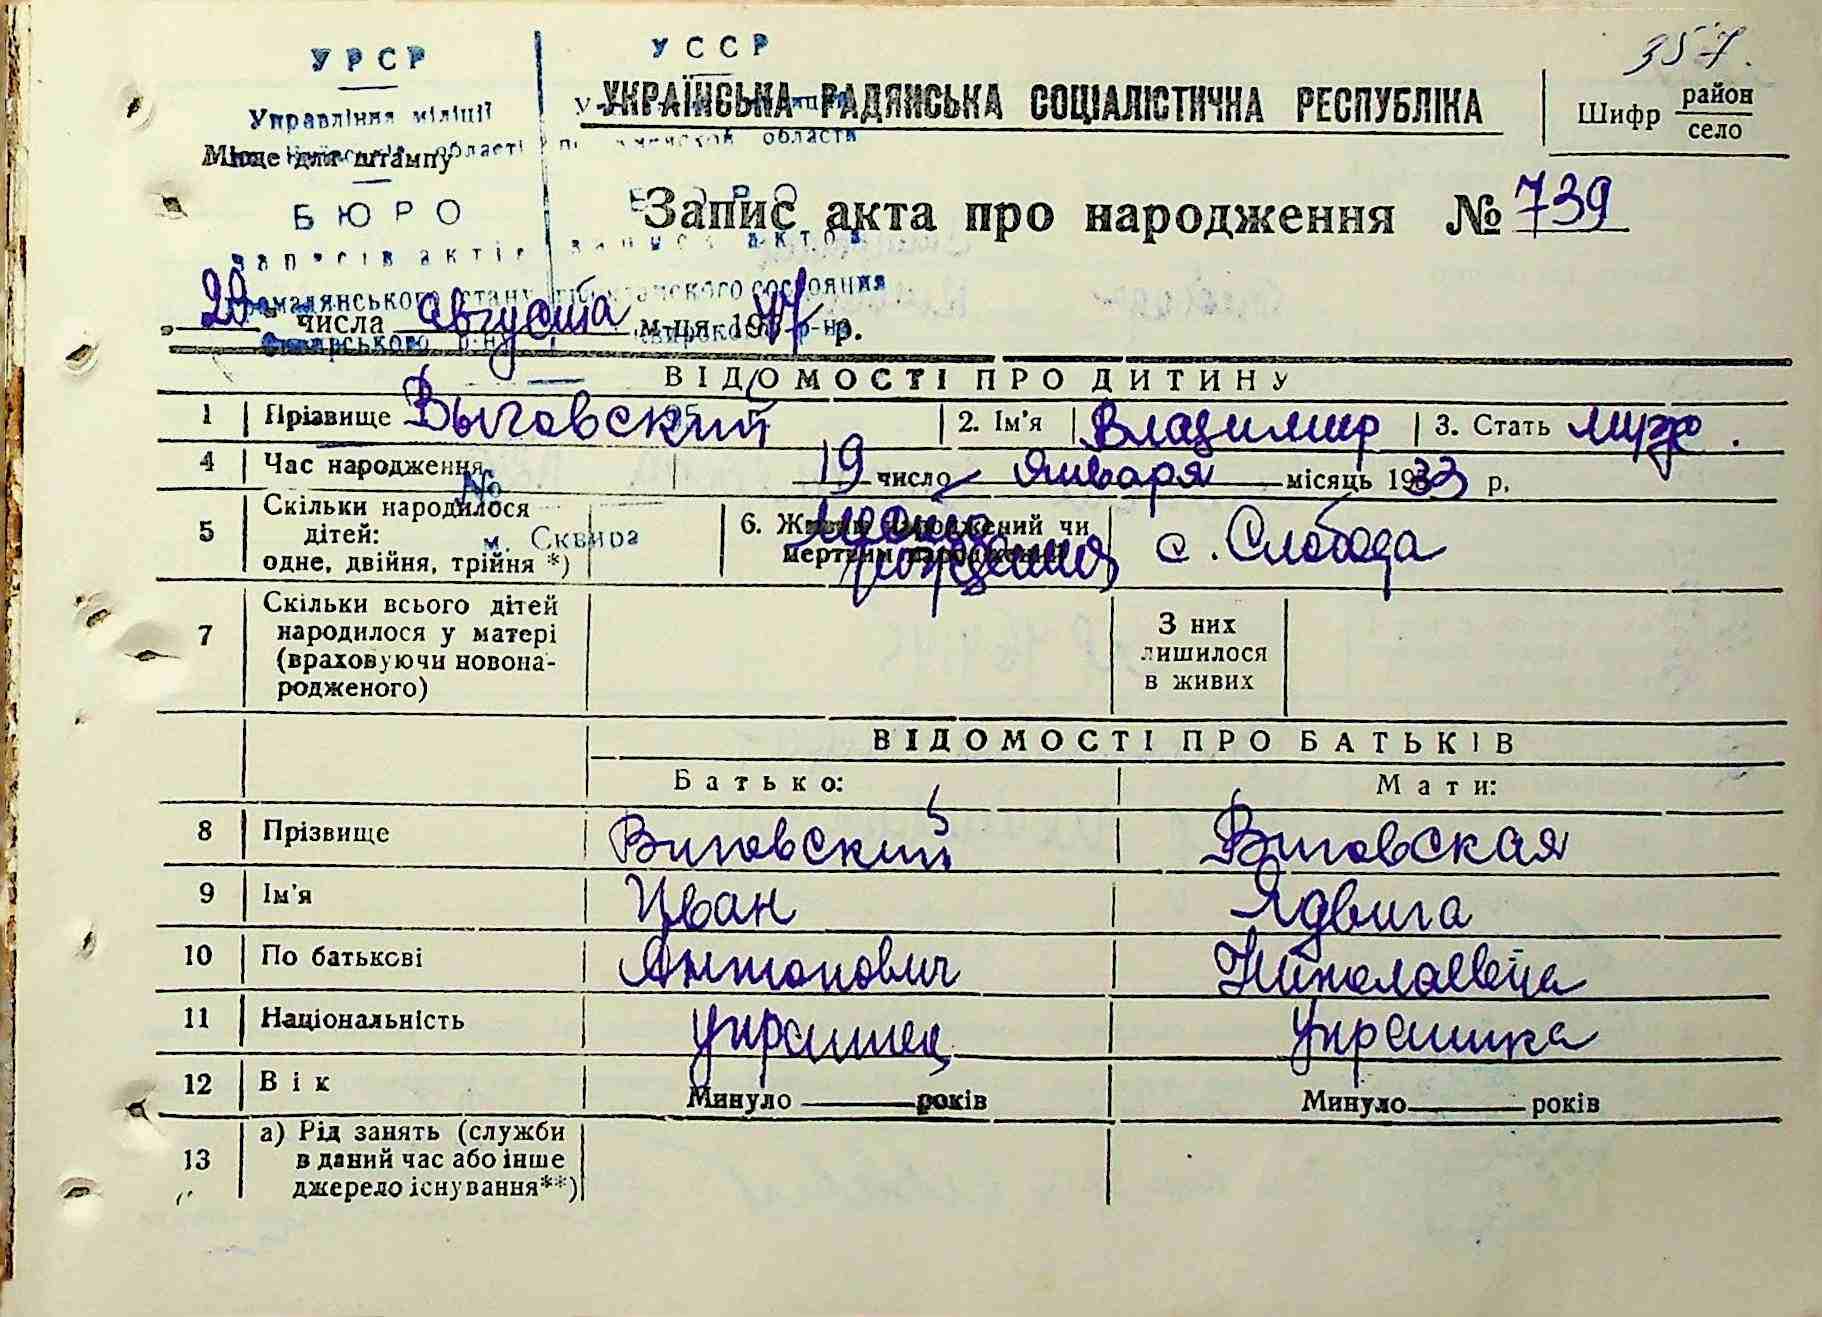 357.
УРСР УССР
УКРАЇНСЬКА РАДЯНСЬКА СОЦІАЛІСТИЧНА РЕСПУБЛІКА
Шифр район
село
Управління міліції
області области
Місце для штампу
БЮРО БЮРО
Запис акта про народження № 739
записів актів записи актов
громадянського стану гражданского состояния
20 числа августа м-ця 1947 р.
Сквирського р-ну Сквирского р-на
ВІДОМОСТІ ПРО ДИТИНУ
1 Прізвище Выговский 2. Ім'я Владимир 3. Стать муж.
4 Час народження 19 число января місяць 1933 р.
№
5 Скільки народилося
дітей:
одне, двійня, трійня *)
м. Сквира
6. Живим народжений чи
мертвим народжений
Место
рождения
с. Слобода
7 Скільки всього дітей
народилося у матері
(враховуючи новона-
родженого)
З них
лишилося
в живих
ВІДОМОСТІ ПРО БАТЬКІВ
Батько: Мати:
8 Прізвище Виговский Виговская
9 Ім'я Иван Ядвига
10 По батькові Антонович Николаевна
11 Національність украинец украинка
12 Вік Минуло років Минуло років
13 а) Рід занять (служби
в даний час або інше
джерело існування**)